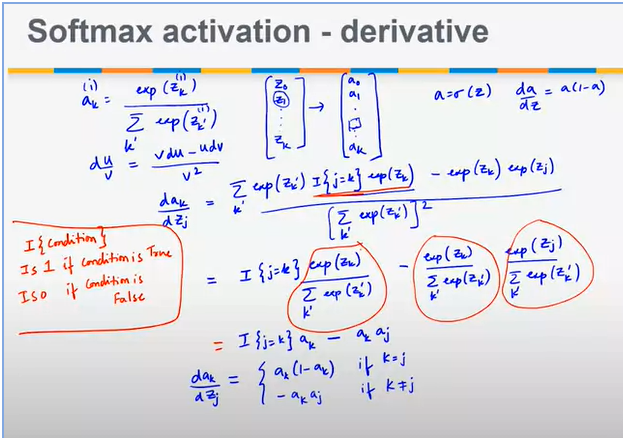 Softmax activation - derivative
a_k^(i) = exp(z_k^(i)) / Σ_k' exp(z_k'^(i))
[z_0 z_1 ⋮ z_k] → [a_0 a_1 ⋮ □ ⋮ a_k]
a=σ(z) da/dz = a(1-a)
d u/v = (vdu - udv) / v^2
da_k/dz_j = (Σ_k' exp(z_k') I{j=k} exp(z_k) - exp(z_k) exp(z_j)) / [Σ_k' exp(z_k')]^2
I{condition}
Is 1 if condition is True
Is 0 if condition is
False
= I{j=k} exp(z_k) / Σ_k' exp(z_k') - exp(z_k) / Σ_k' exp(z_k') exp(z_j) / Σ_k' exp(z_k')
= I{j=k} a_k - a_k a_j
da_k/dz_j = { a_k(1-a_k) if k=j
- a_k a_j if k≠j